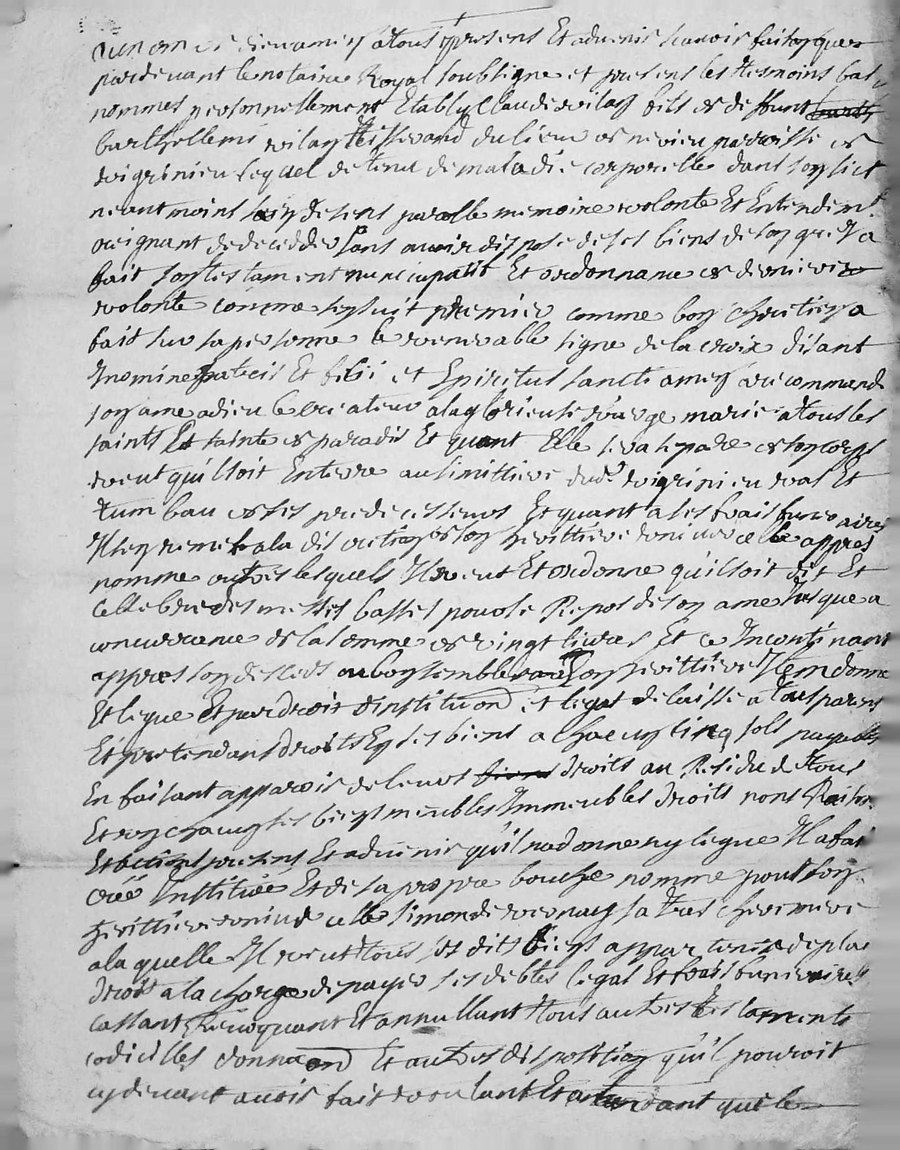 au nom de dieu amen a tous presens Et advenir scavoir faisons que
pardevant le notaire Royal soubsigne et presens les tesmoins bas
nommes personnellement Estably Claude vilay fils de deffunt
barthellemi vilay tisserand du lieu de parroisse de
vigrinieu lequel detenu de maladie corporelle dans son lict
neantmoins sain de sens parolle memoire volonte Et Entendemt
creignant de decedder sans avoir dispose de ses biens de son gre a
fait son testament nuncupatif Et ordonnance de derniere
volonte comme sensuit premier comme bon chrestien a
fait sur sa personne le venerable signe de la croix disant
Innomine patris Et filii et spiritus sancti amen a recommande
son ame a dieu le createur a la glorieuse vierge marie a tous les
saints Et sainte de paradis Et quant Elle sera separe de son corps
veut qu'il soit Enterre au simittiere dud. vigrinieu vas Et
tumbau de ses predecesseurs Et quant a ses frais funeraires
Il sen remet a la discretion de son herittiere universelle appres
nomme outres lesquels Il veut Et ordonne qu'il soit dit Et
cellebre des messes basses pour le Repos de son ame Jusque a
concurrance de la somme de vingt livres Et ce Incontinant
appres son desceds au bon semble de son herittiere Item donne
Et legue Et par droit d'institution et legat delaisse a tous parens
Et pretendans droits En ses biens a chacun cinq sols payables
En faisant apparoir de leurs droits au Residu de tous
Et un chacun ses biens meubles Immeubles droits noms Raisons
Et actions presens Et advenir qu'il na donne ny legue Il a fait
cree Institue Et de sa propre bouche nomme pour son
herittiere universelle simonde vernay sa tres chere mere
a la quelle Il veut tous ses dits biens appartenir de plain
droit a la charge de payer ses debtes legats Et frais funeraires
cassant Revoquant Et annullant tous autres testaments
codicilles donnaon Et autres disposition qu'il pourroit
cy devant avoir fait voulant Et entendant que le